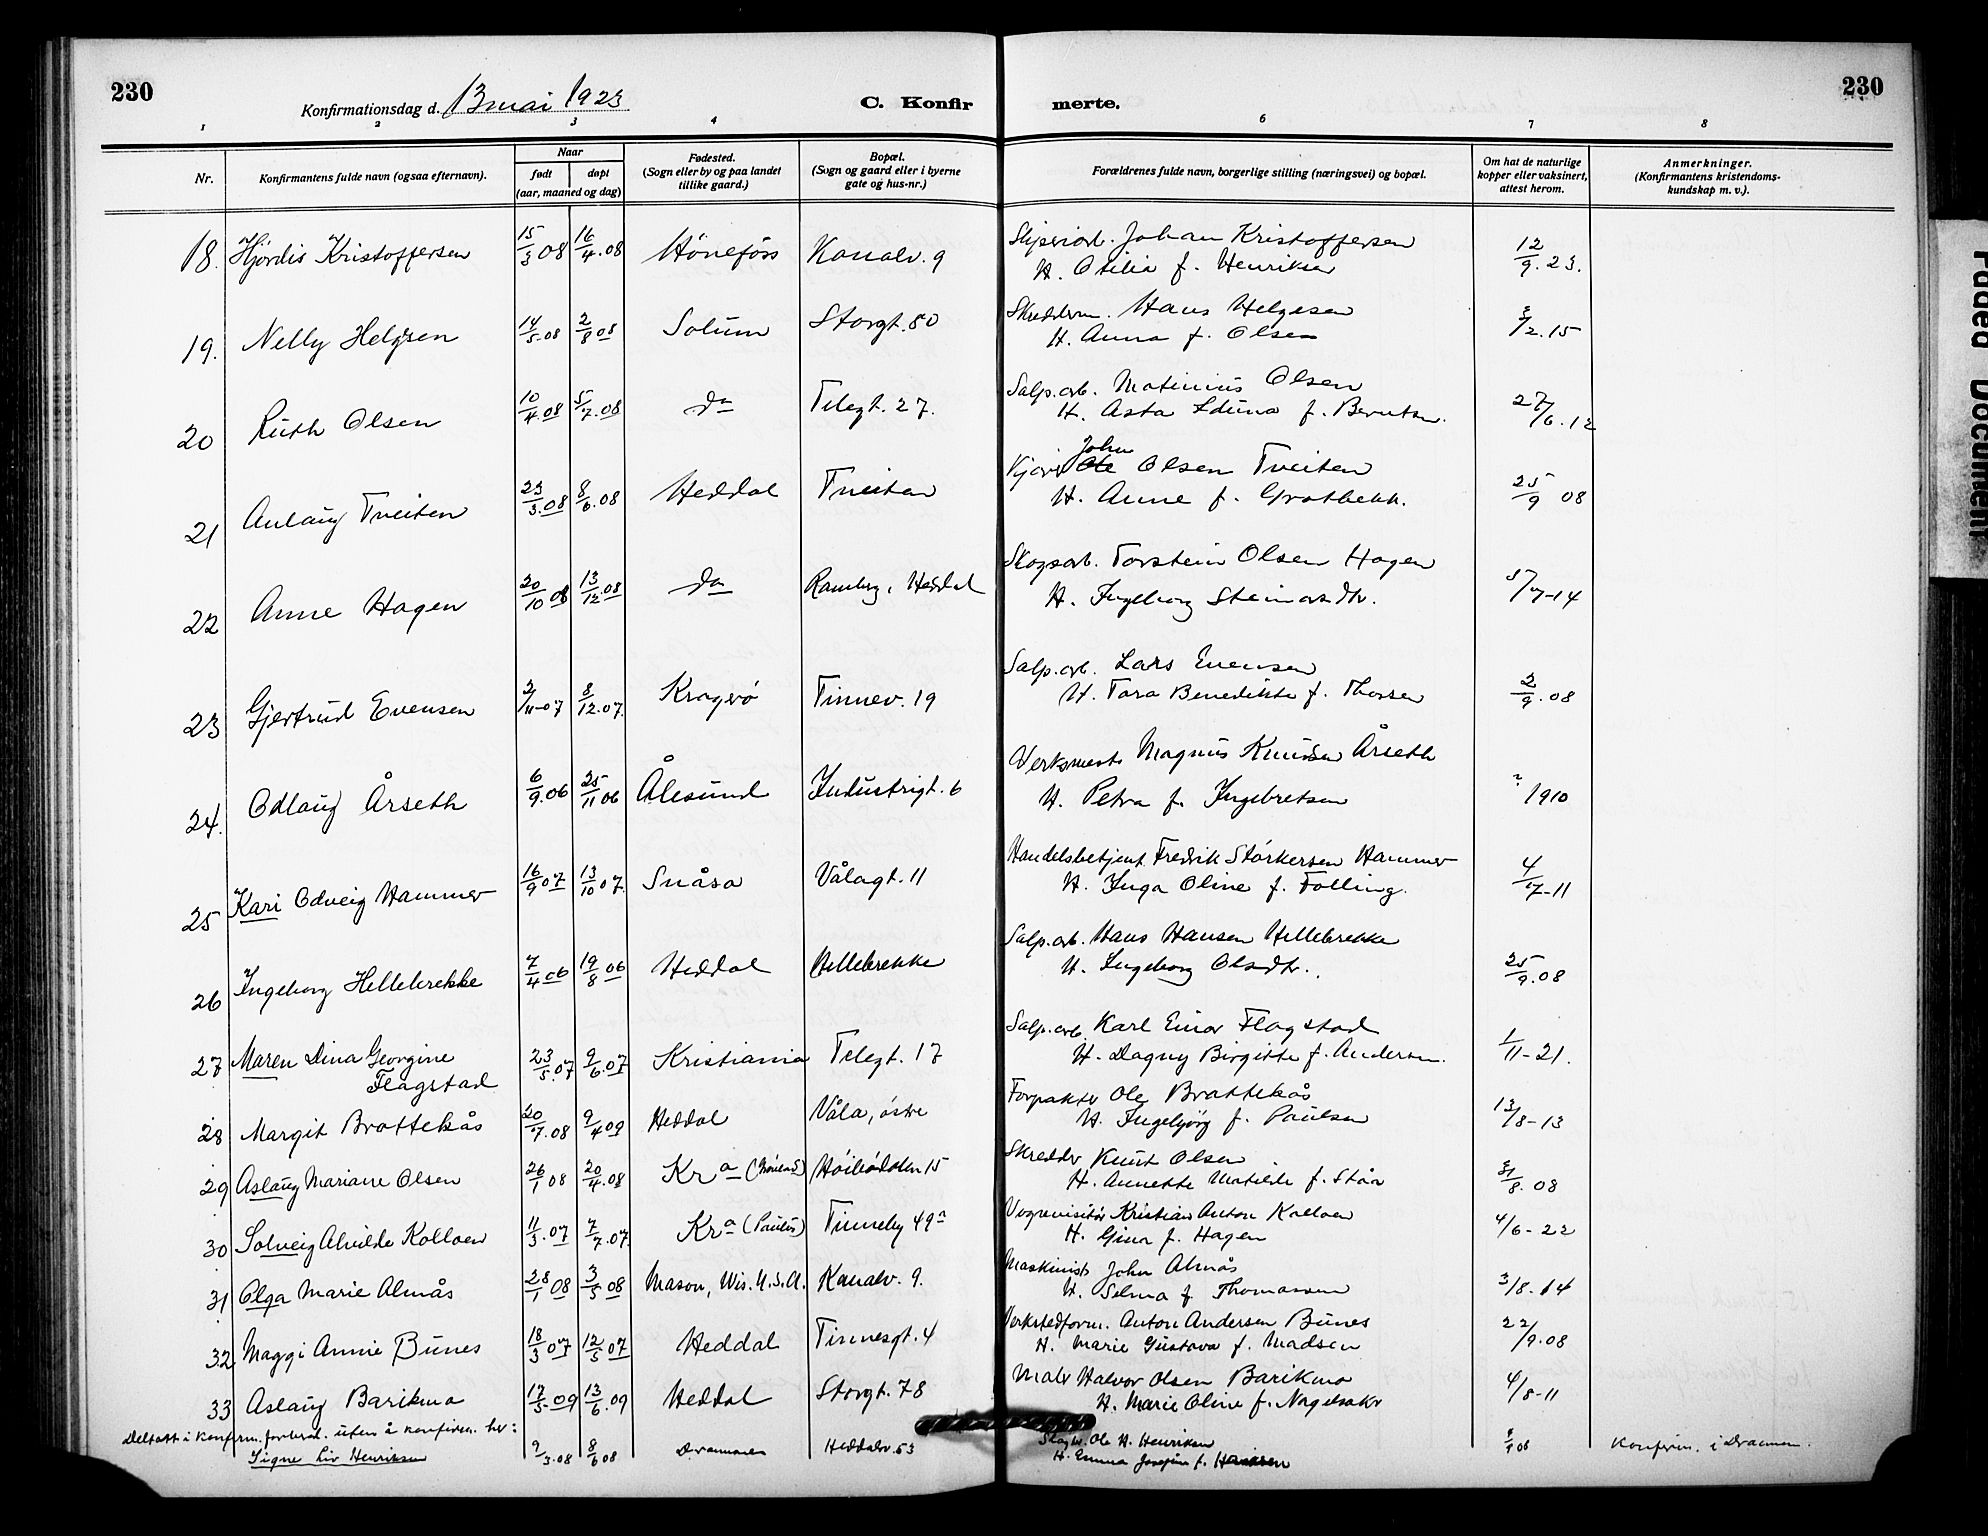 230
Konfirmationsdag d. 13 mai 1923
C. Konfir merte.
230
1 2 3 4 6 7 8
Nr.
Konfirmantens fulde navn (ogsaa efternavn).
Naar
født døpt
(aar, maaned og dag)
Fødested.
(Sogn eller by og paa landet
tillike gaard.)
Bopæl.
(Sogn og gaard eller i byerne
gate og hus-nr.)
Forældrenes fulde navn, borgerlige stilling (næringsvei) og bopæl.
Om hat de naturlige
kopper eller vaksinert,
attest herom.
Anmerkninger.
(Konfirmantens kristendoms-
kundskap m. v.).
18. Hjördis Kristoffersen 15/3 08 16/4.08 Hönefoss Kanalv. 9 Johan Kristoffersen 12/9.23.
H. Otilia f. Henriksen
19. Nelly Helgesen 14/5.08 2/8 08 Solum Storgt. 80 Skredderm. Hans Helgesen 3/2.15
H. Anna f. Olsen
20 Ruth Olsen 10/4.08 5/7.08 do Telegt. 27. Salp.arb. Matinius Olsen 27/6.12
H. Asta Iduna f. Berntsen.
21 Aulaug Tveiten 23/3.08 8/6.08 Heddal Tveiten John Olsen Tveiten 25/9 08
H. Anne f. Grotbekk.
22 Anne Hagen 20/10 08 13/12.08 do Ramberg, Heddal Skogsarb. Torstein Olsen Hagen 5/7-14
H. Ingeborg Steinarsdtr.
23 Gjertrud Evensen 2/11-07 8/12.07. Kragerö Tinnev. 19 Salp.arb. Lars Evensen 2/9.08
H. Tora Benedikte f. Thorsen
24. Odlaug Årseth 6/9.06 25/11 06 Ålesund Industrigt. 6 Verksmests Magnus Knudsen Årseth ? 1910
H. Petra f. Ingebretsen
25 Kari Odveig Hammer 16/9 07 13/10 07. Snåsa Vålagt. 11 Handelsbetjent Fredrik Störkersen Hammer 4/7-11
H. Inga Oline f. Folling.
26 Ingeborg Hellebrekke 7/4 06 19/8 06 Heddal Hellebrekke Salp.arb. Hans Hansen Hellebrekke 25/9.08
H. Ingeborg Olsdtr.
27 Maren Dina Georgine 23/5.07 9/6.07 Kristiania Telegt. 17 Salp.arb. Karl Einar Flagstad 1/11-21.
Flagstad H. Dagny Birgitte f. Andersen.
28 Margit Brattekås 20/7.08 9/4 09 Heddal Våla, östre Forpakter Ole Brattekås 13/8-13
H. Ingebjörg f. Paulsen
29 Aslaug Mariane Olsen 26/1 08 20/4.08 Kra Höibödalen 15 Skredder Knut Olsen 3/8.08
H. Annette Matilde f. Står
30 Solveig Alvilde Kolloen 11/3.07 7/7.07. Kra (Paulus) Tinneby 49a Vogrevisitör Kristian Anton Kolloen 4/6-22
H. Gina f. Hagen
31 Olga Marie Almås 28/1 08 3/5 08 Mason, Wis. U.S.A. Kanalv. 9. Maskinist John Almås 3/8.14
H. Selma f. Thomassen
32 Maggi Annie Bunes 18/3 07 12/5 07 Heddal Tinnesgt. 4 Verkstedform. Anton Andersen Bunes 22/9.08
H. Marie Gustava f. Madsen
33 Aslaug Barikmo 17/5-09 13/6.09 Heddal Storgt. 78 Maler Halvor Olsen Barikmo 4/8-11
H. Marie Oline f. Nagelsaker
Deltatt i konfirm.forbered. uten å konfirm. her:
Signe Liv Henriksen 9/3.08 8/6 08 Drammen Heddalv. 53 Ole H. Henriksen Konfirm. i Drammen.
H. Emma Josefine f. Hansen
Faded Document